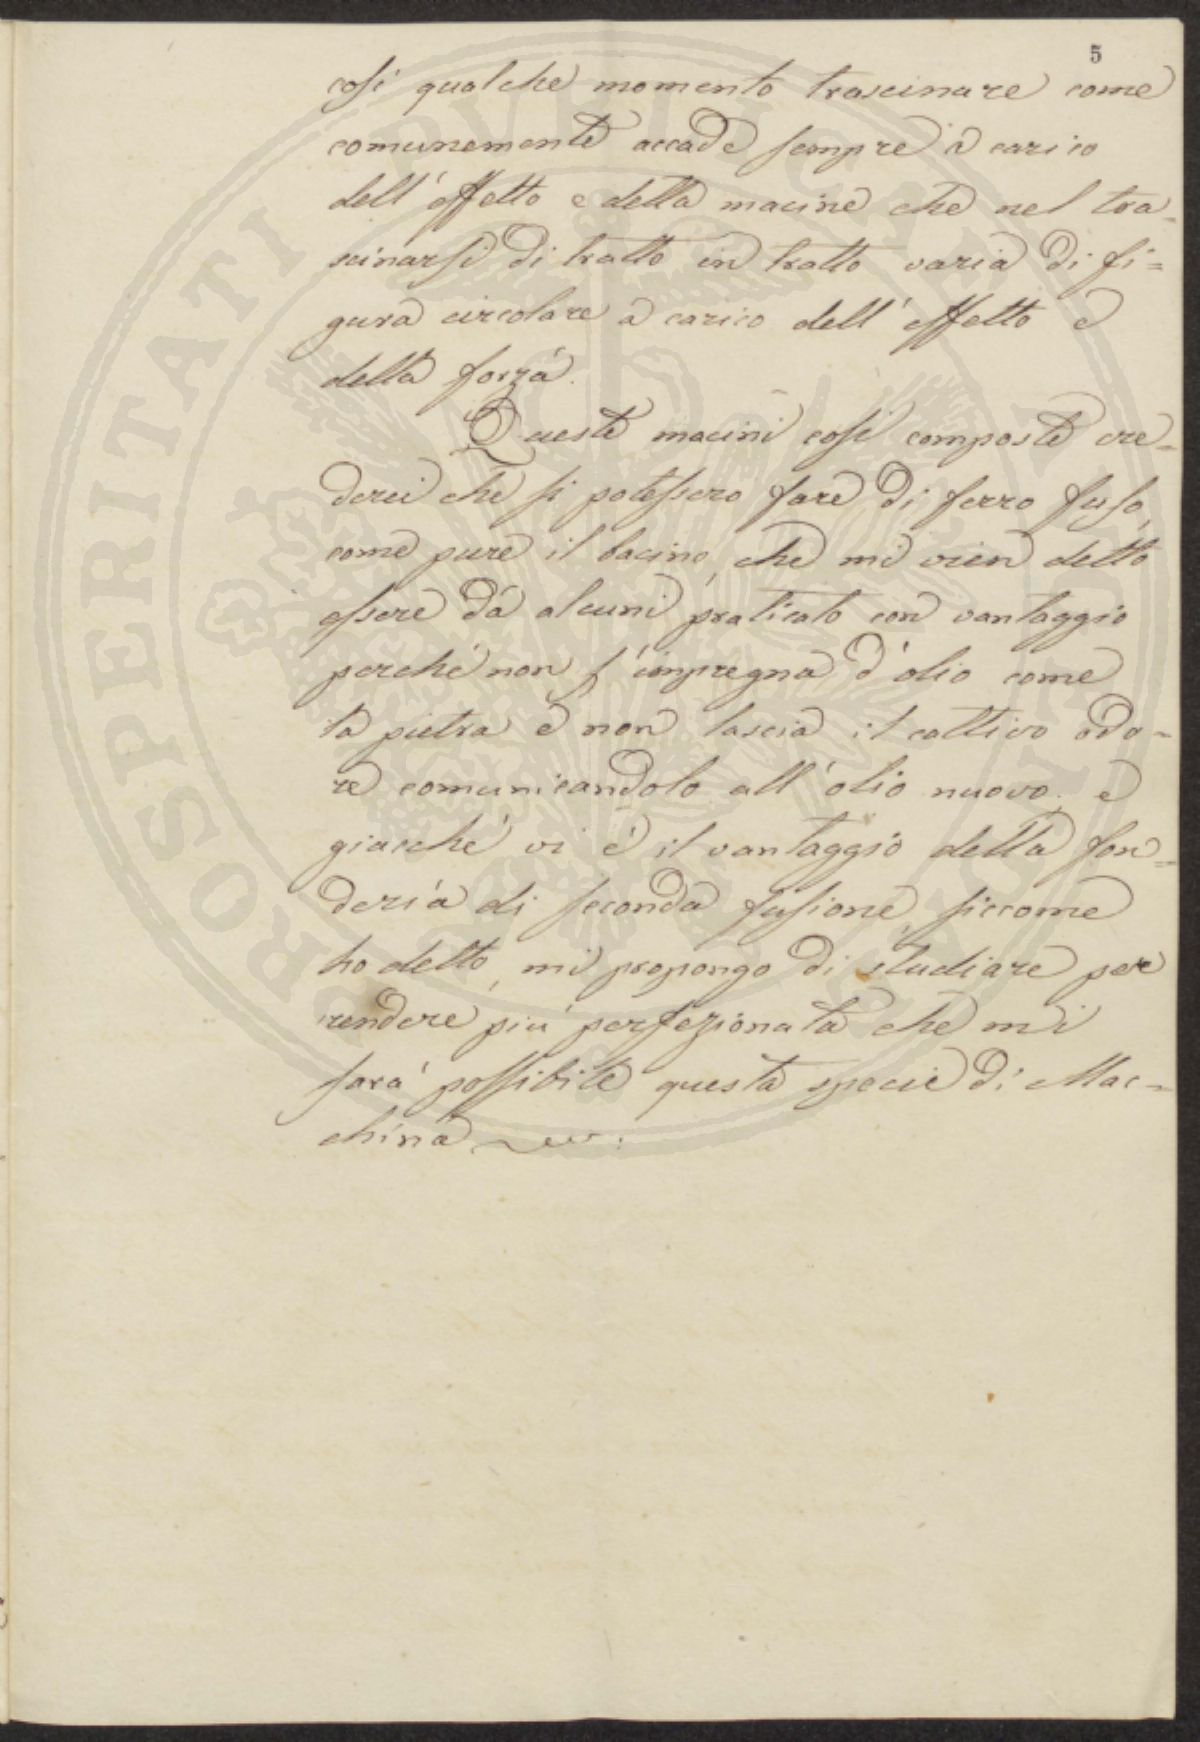 5
così qualche momento trascinare come
comunemente accade sempre à carico
dell'effetto e della macine che nel tra=
scinarsi di tratto in tratto varia di fi=
gura circolare à carico dell'effetto e
della forza.
Queste macini così composte cre=
derei che si potessero fare di ferro fuso,
come pure il bacino, che mi vien detto
essere dà alcuni praticato con vantaggio
perché non s'impregna d'olio come
la pietra e non lascia il cattivo odo=
re comunicandolo all'olio nuovo; e
giacché vi é il vantaggio della fon=
deria di seconda fusione, siccome
ho detto, mi propongo di studiare per
rendere piú perfezionata che mi
sará possibile questa specie di Mac=
china
PROSPERITATI PVBLICAE AVGENDAE